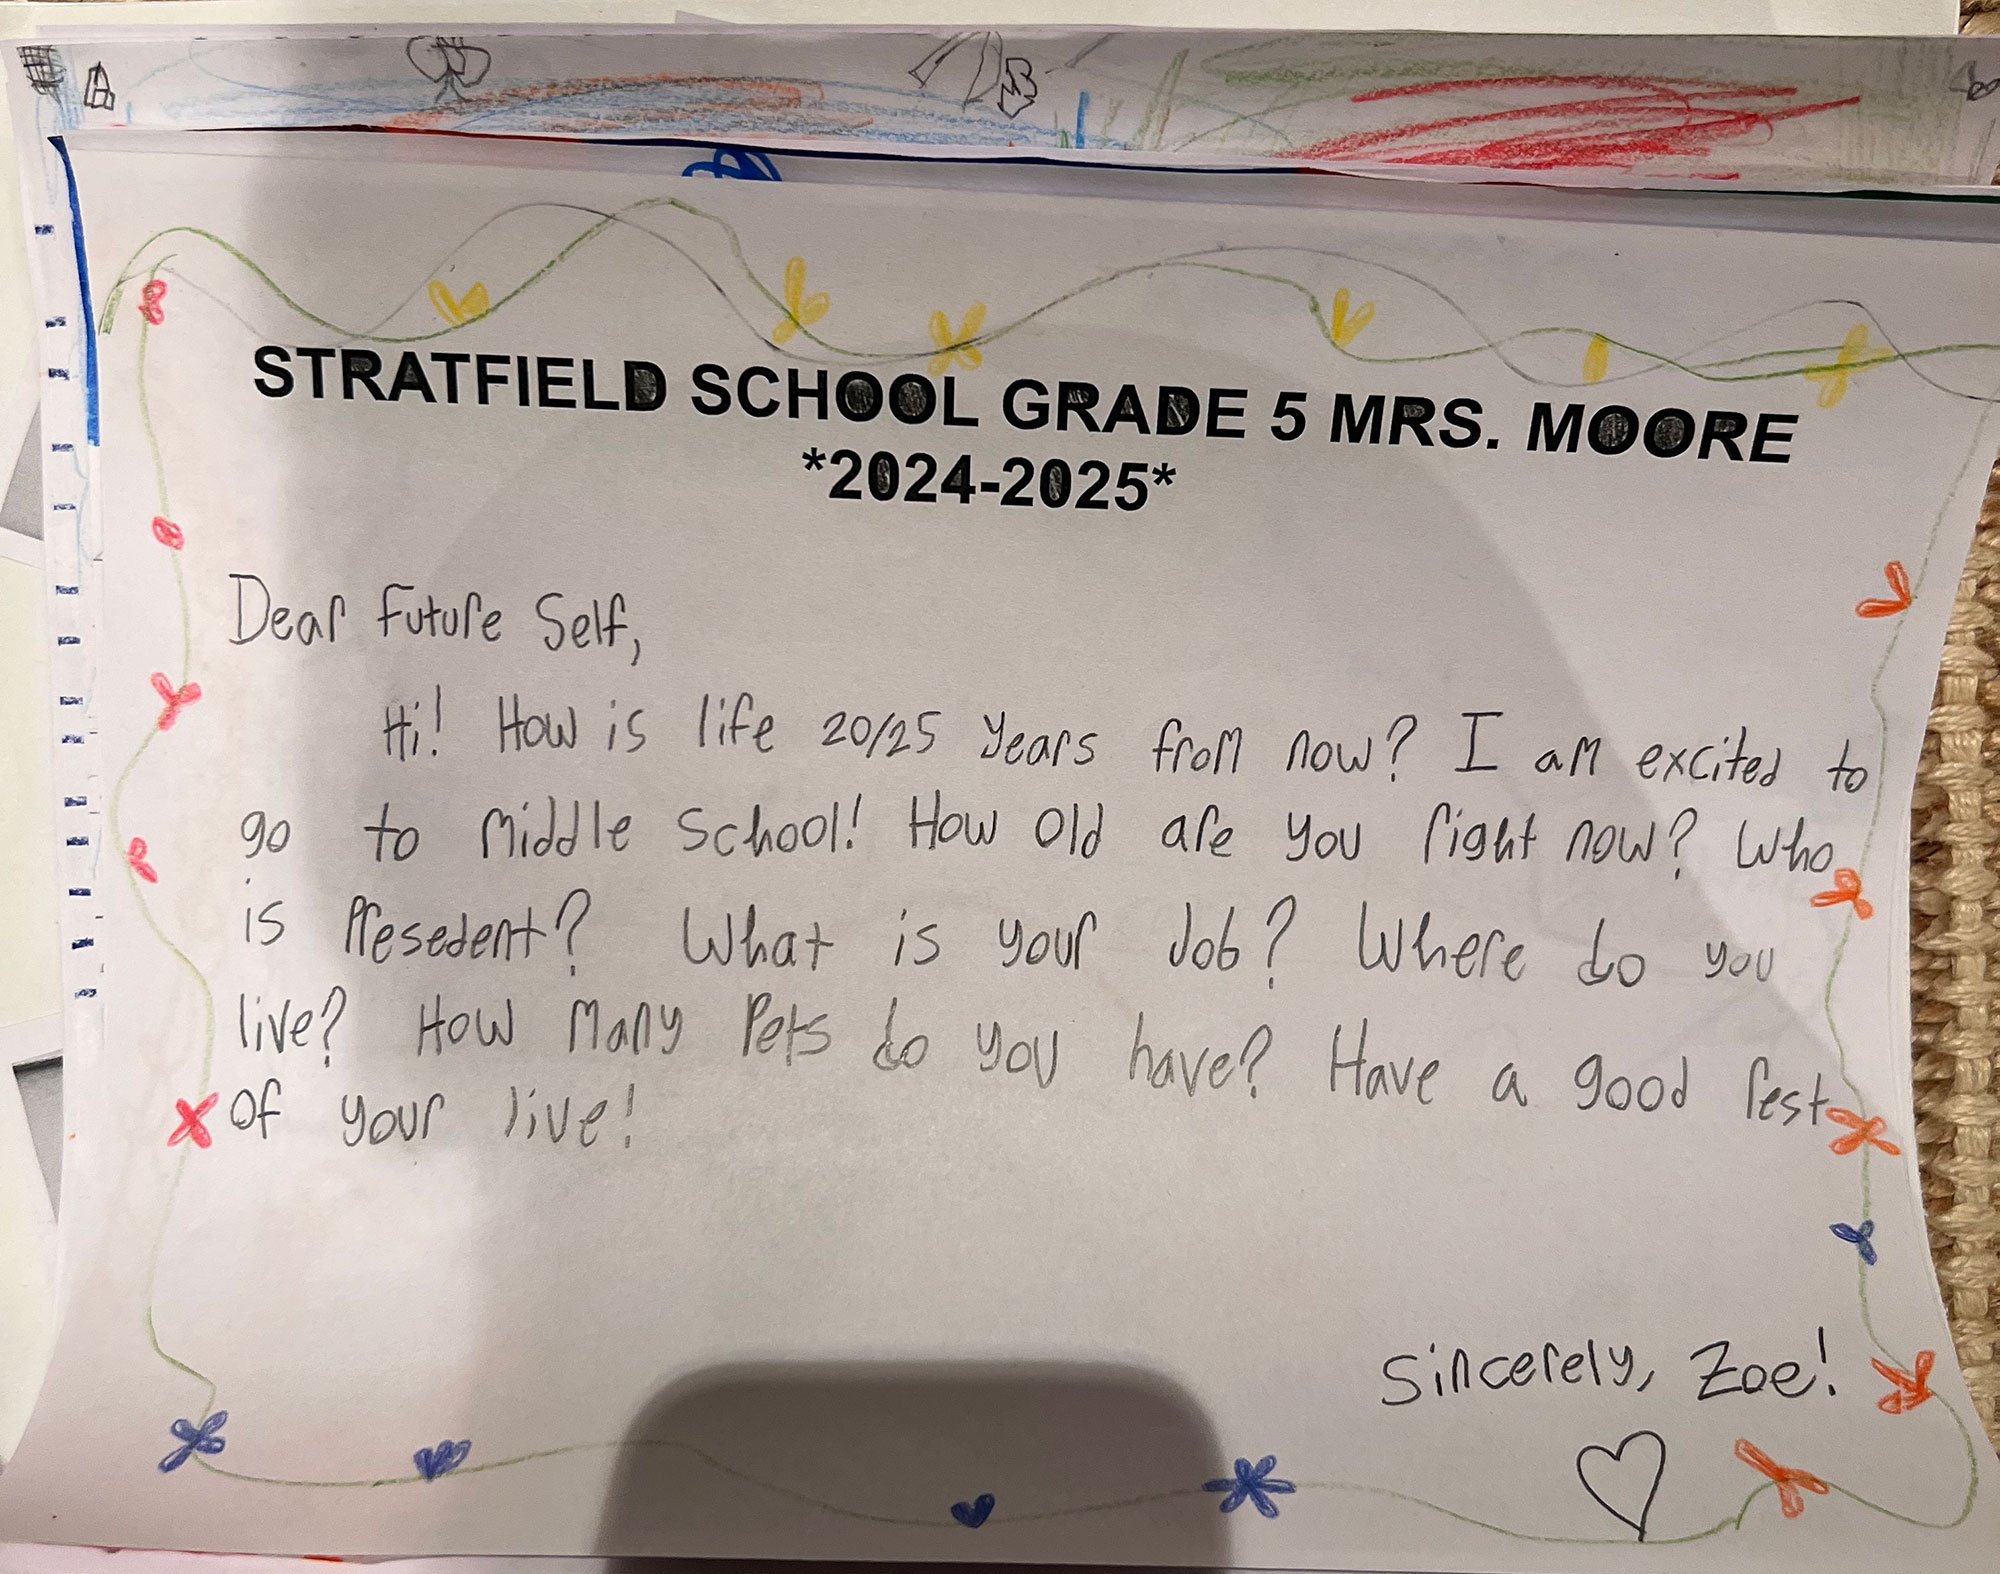 STRATFIELD SCHOOL GRADE 5 MRS. MOORE
*2024-2025*
Dear Future Self,
Hi! How is life 20/25 years from now? I am excited to
go to middle school! How old are you right now? Who
is Presedent? What is your Job? Where do you
live? How many Pets do you have? Have a good rest
of your live!
Sincerely, Zoe!